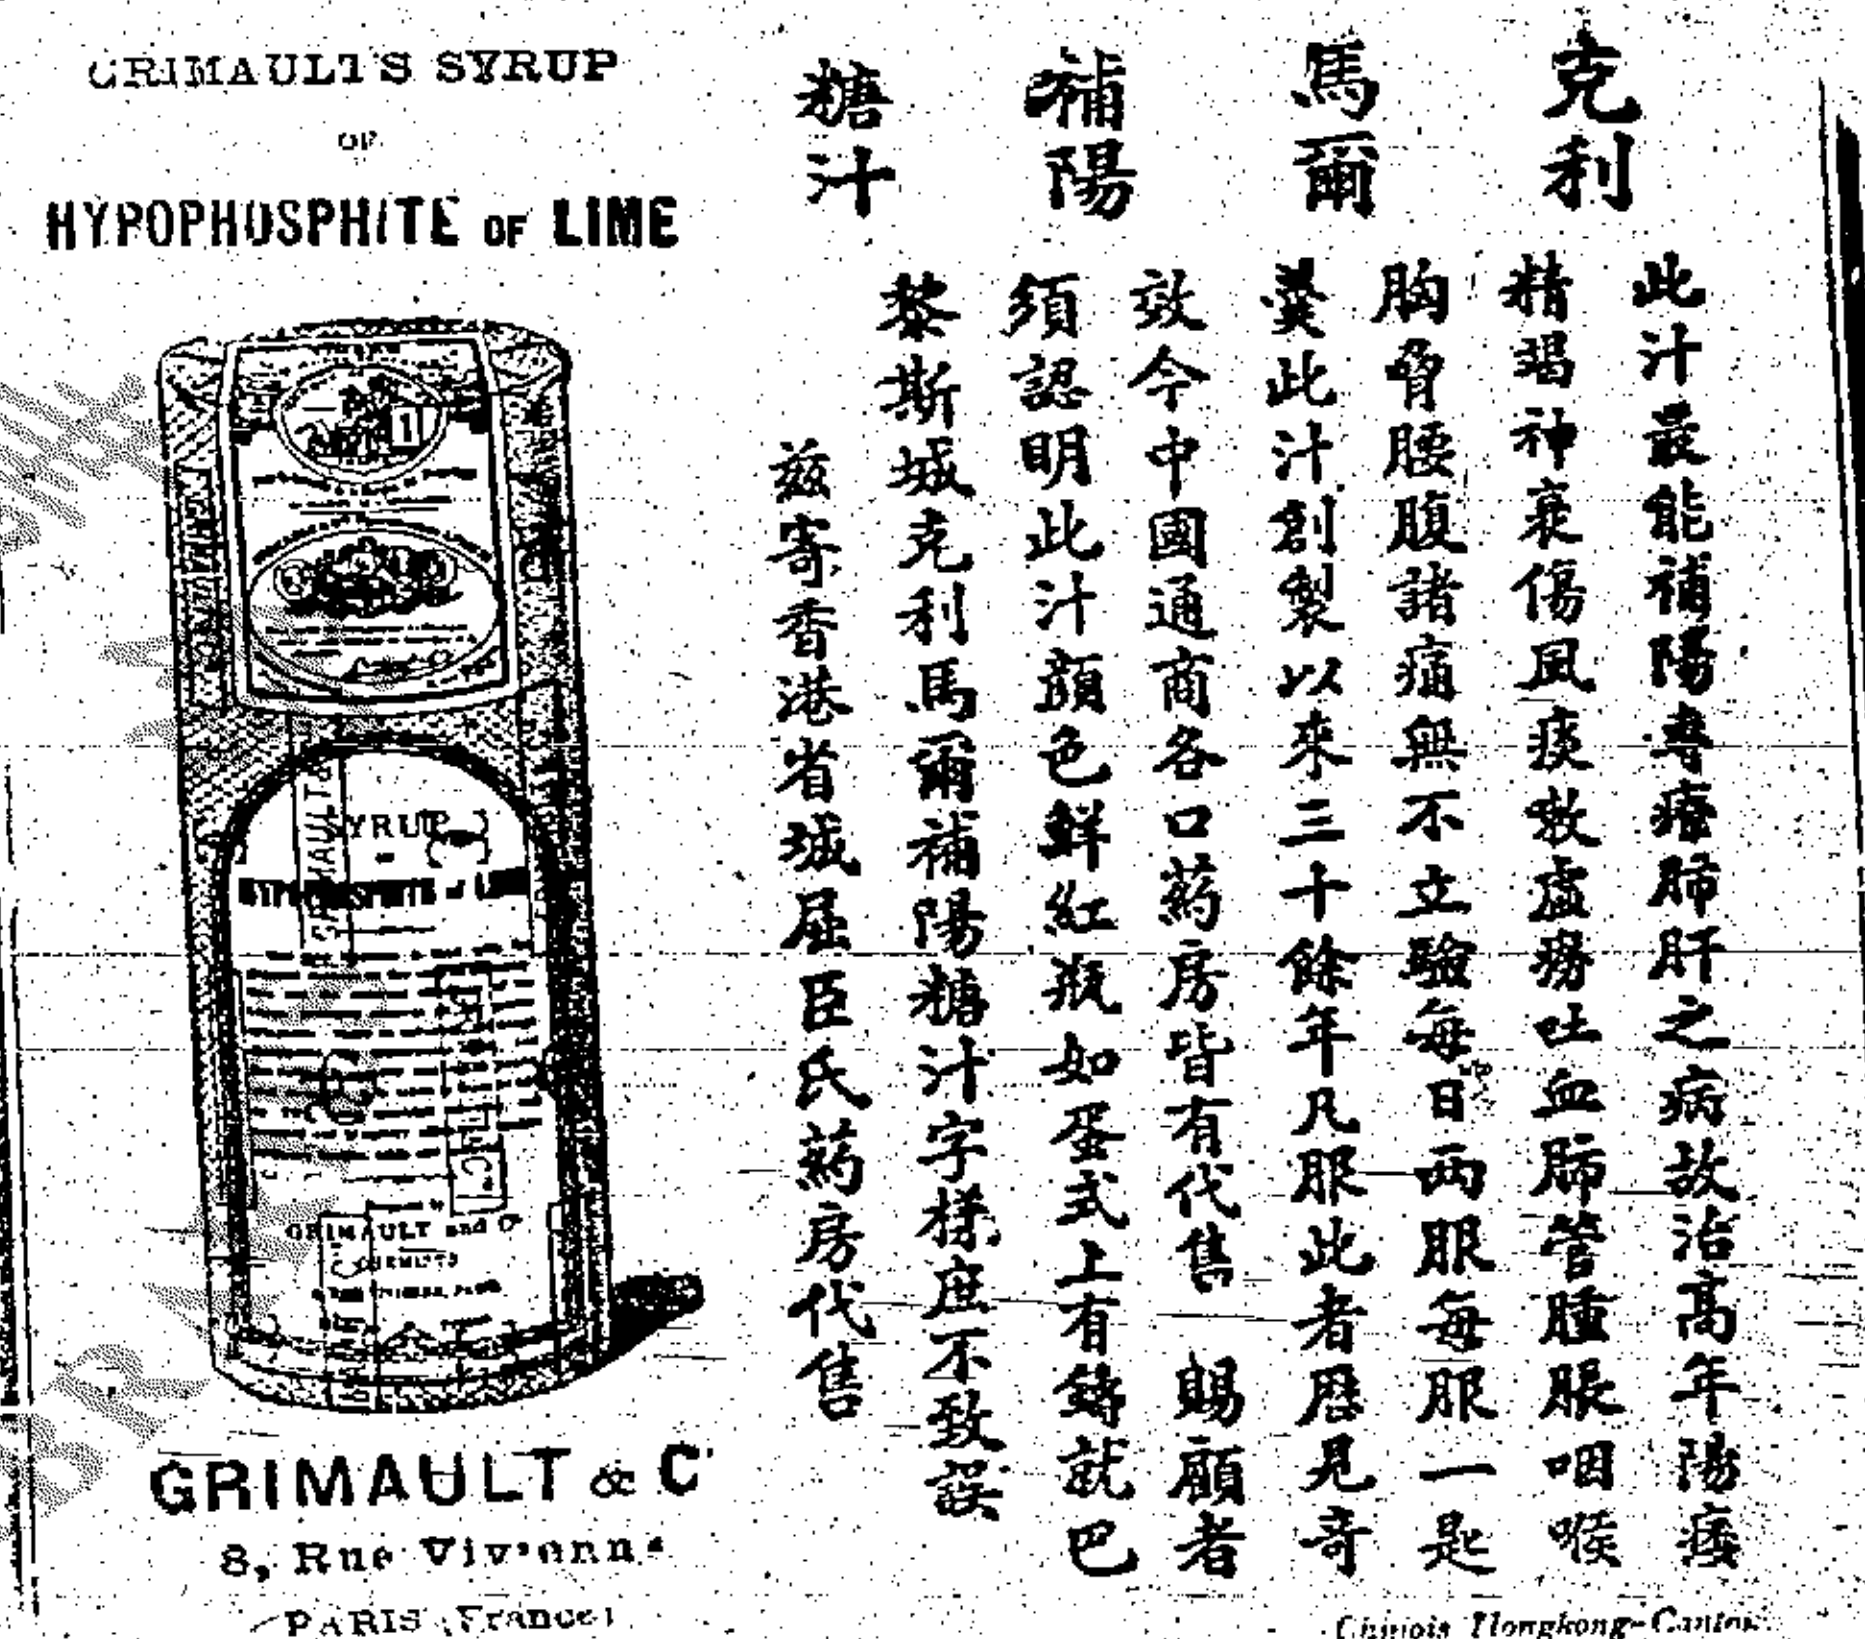 GRIMAULT'S SYRUP
OF
HYPOPHOSPHITE OF LIME
SYRUP
HYPOPHOSPHITE of LIME
GRIMAULT and Co
GRIMAULT & C
8, Rue Vivienne
PARIS (France)
克利
馬爾
補陽
糖汁
此汁最能補陽專療肺肝之病故治高年陽痿
精竭神衰傷風痰嗽虛癆吐血肺管腫脹咽喉
胸脅腰腹諸痛無不立驗每日兩服每服一匙
羮此汁創製以來三十餘年凡服此者歷見奇
效今中國通商各口葯房皆有代售 賜顧者
須認明此汁顏色鮮紅瓶如蛋式上有鑄就巴
黎斯城克利馬爾補陽糖汁字様庶不致誤
茲寄香港省城屈臣氏葯房代售
Chinois Hongkong-Canton